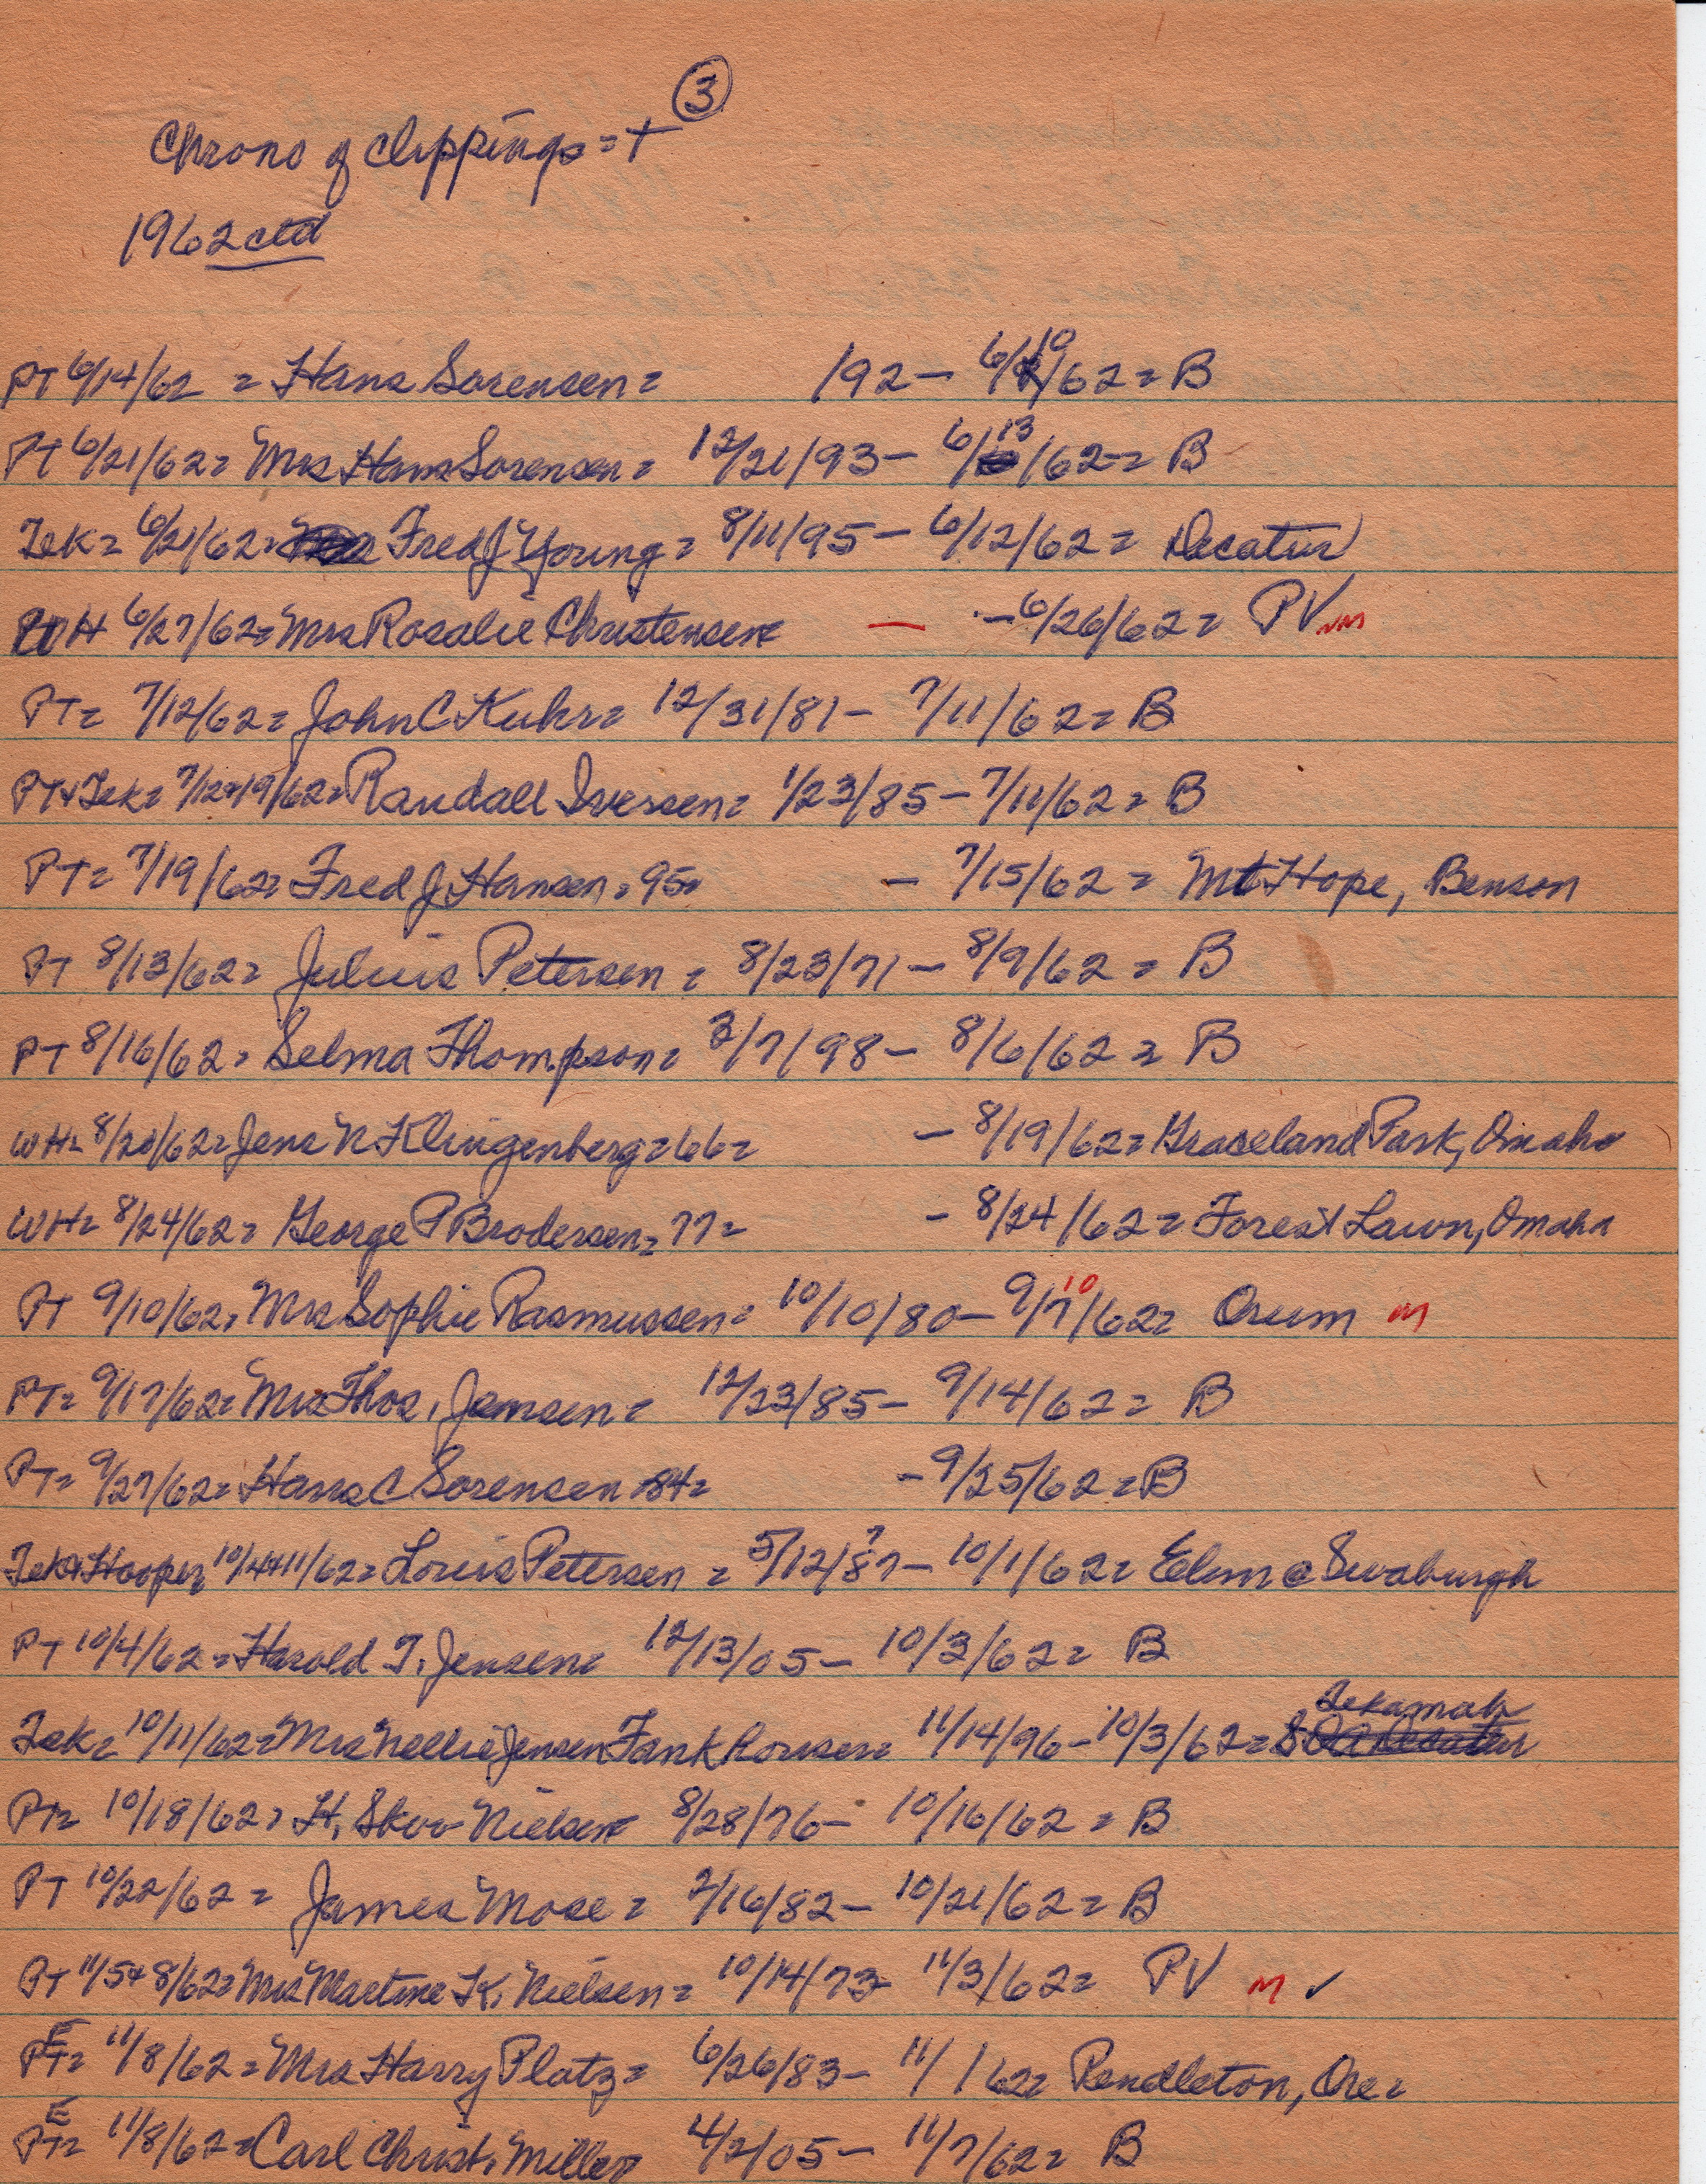 3
Chrono of clippings = +
1962 ctd
PT 6/14/62 = Hans Sorensen = 192 - 6/10/62 = B
PT 6/21/62 = Mrs Hans Sorensen = 12/21/93 - 6/13/62 = B
Tek = 6/21/62 = Fred J Young = 8/11/95 - 6/12/62 = Decatur
WH 6/27/62 = Mrs Rosalie Christensen = — - 6/26/62 = PV
PT = 7/12/62 = John C Kuhr = 12/31/81 - 7/11/62 = B
PT + Tek = 7/12+19/62 = Randall Iversen = 1/23/85 - 7/11/62 = B
PT = 7/19/62 = Fred J Hansen = 95 = - 7/15/62 = Mt Hope, Benson
PT 8/13/62 = Julius Petersen = 8/23/71 - 8/9/62 = B
PT 8/16/62 = Selma Thompson = 3/7/98 - 8/6/62 = B
WH = 8/20/62 = Jens N Klingenberg = 66 = - 8/19/62 = Graceland Park, Omaha
WH = 8/24/62 = George P Brodersen = 77 = - 8/24/62 = Forest Lawn, Omaha
PT 9/10/62 = Mrs Sophie Rasmussen = 10/10/80 - 9/7/62 = Orum m
10
PT = 9/17/62 = Mrs Thos. Jensen = 12/23/85 - 9/14/62 = B
PT = 9/27/62 = Hans C Sorensen = 84 = - 9/25/62 = B
Tek + Hooper 10/4+11/62 = Louis Petersen = 5/12/87 - 10/1/62 = Elim @ Swaburgh
?
PT 10/4/62 = Harold T. Jensen = 12/13/05 - 10/3/62 = B
Tek = 10/11/62 = Mrs Nellie Jensen Fankhouser = 11/14/96 - 10/3/62 = Tekamah
PT = 10/18/62 = H. Skov Nielsen = 8/28/76 - 10/16/62 = B
PT 10/22/62 = James Mose = 2/16/82 - 10/21/62 = B
PT 11/5+8/62 = Mrs Martine K. Nielsen = 10/14/73 - 11/3/62 = PV m ✓
E 11/8/62 = Mrs Harry Platz = 6/26/83 - 11/ /62 = Pendleton, Ore =
E 11/8/62 = Carl Christ. Miller 4/2/05 - 11/7/62 = B